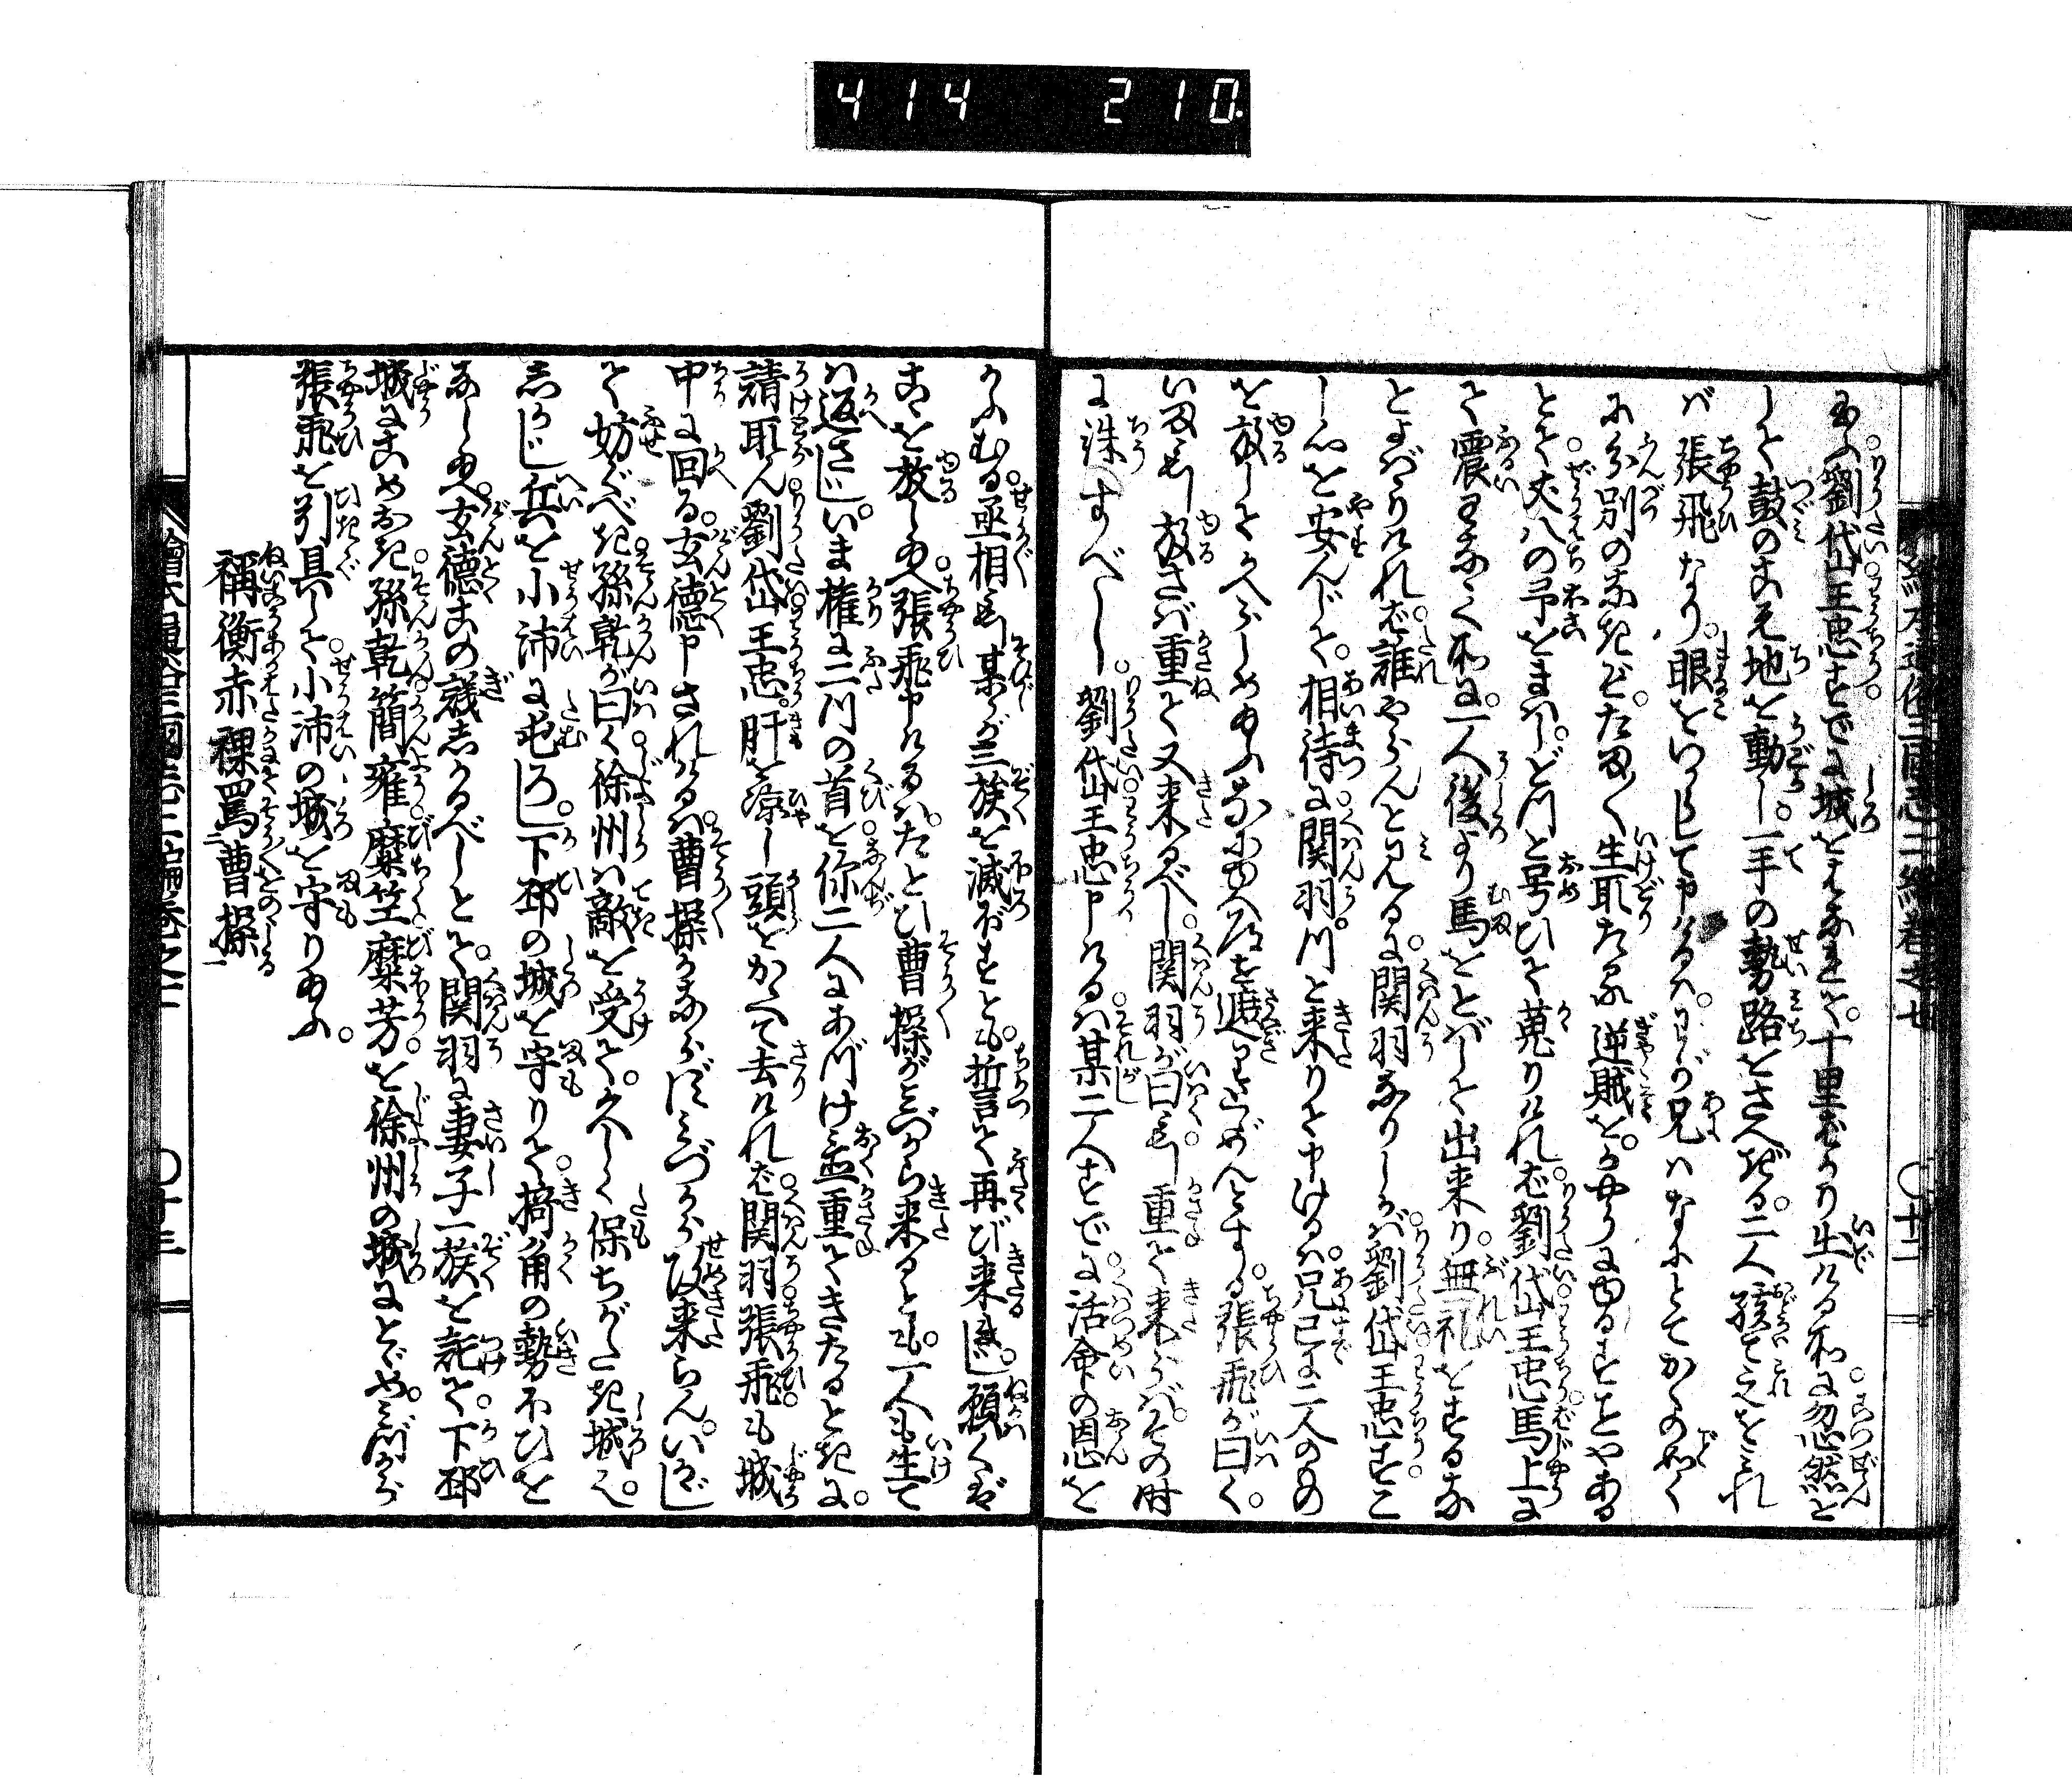 414 210
玉ふ劉岱王忠すでに城をはなれて十里ばかり出ける所に忽然と
して鼓のこゑ地を動し一手の勢路をさへぎる二人驚てこれをみれ
バ張飛なり眼をいからして申けるハわが兄ハなにとてかくの如く
に分別のなきぞたま〳〵生取たる逆賊をかやうにゆるすことやある
とて丈八の矛をまハしどつと号ひて蒐りけれバ劉岱王忠馬上に
て震ひわなゝく所に一人後より馬をとバして出来り無礼をするな
とよバりけれバ誰やらんとみるに関羽なりしかバ劉岱王忠すこ
し心を安んじて相待に関羽川と来りて申けるハ兄已に二人のもの
を放してかへらしめ玉ふなにゆへに遮りとゞめんとする張飛が曰く
いま放さバ重て又来るべし関羽が曰重て来らバその時
に誅すべし劉岱王忠申けるハ某二人すでに活命の恩を
かふむる丞相某が三族を滅ぼすとも誓て再び来るまじ願くバ
これを放し玉へ張飛申けるハたとひ曹操がみづから来るとも一人も生て
ハ返さじいま権に二つの首を你二人にあづけ置重てきたるときに
請取ん劉岱王忠肝を冷し頭をかゝへて去けれバ関羽張飛も城
中に回る玄徳申されけるハ曹操かならずみづから攻来らんいかゞし
て妨ぐべき孫乾が曰く徐州ハ敵を受て久しく保ちがたき城也
しかじ兵を小沛に屯し下邳の城を守りて掎角の勢ひを
なし玉へ玄徳この議しかるべしとて関羽に妻子一族を託て下邳
城にこめおき孫乾簡雍糜竺糜芳を徐州の城にとゞめみづから
張飛を引具して小沛の城を守り玉ふ
禰衡赤裸罵二曹操一